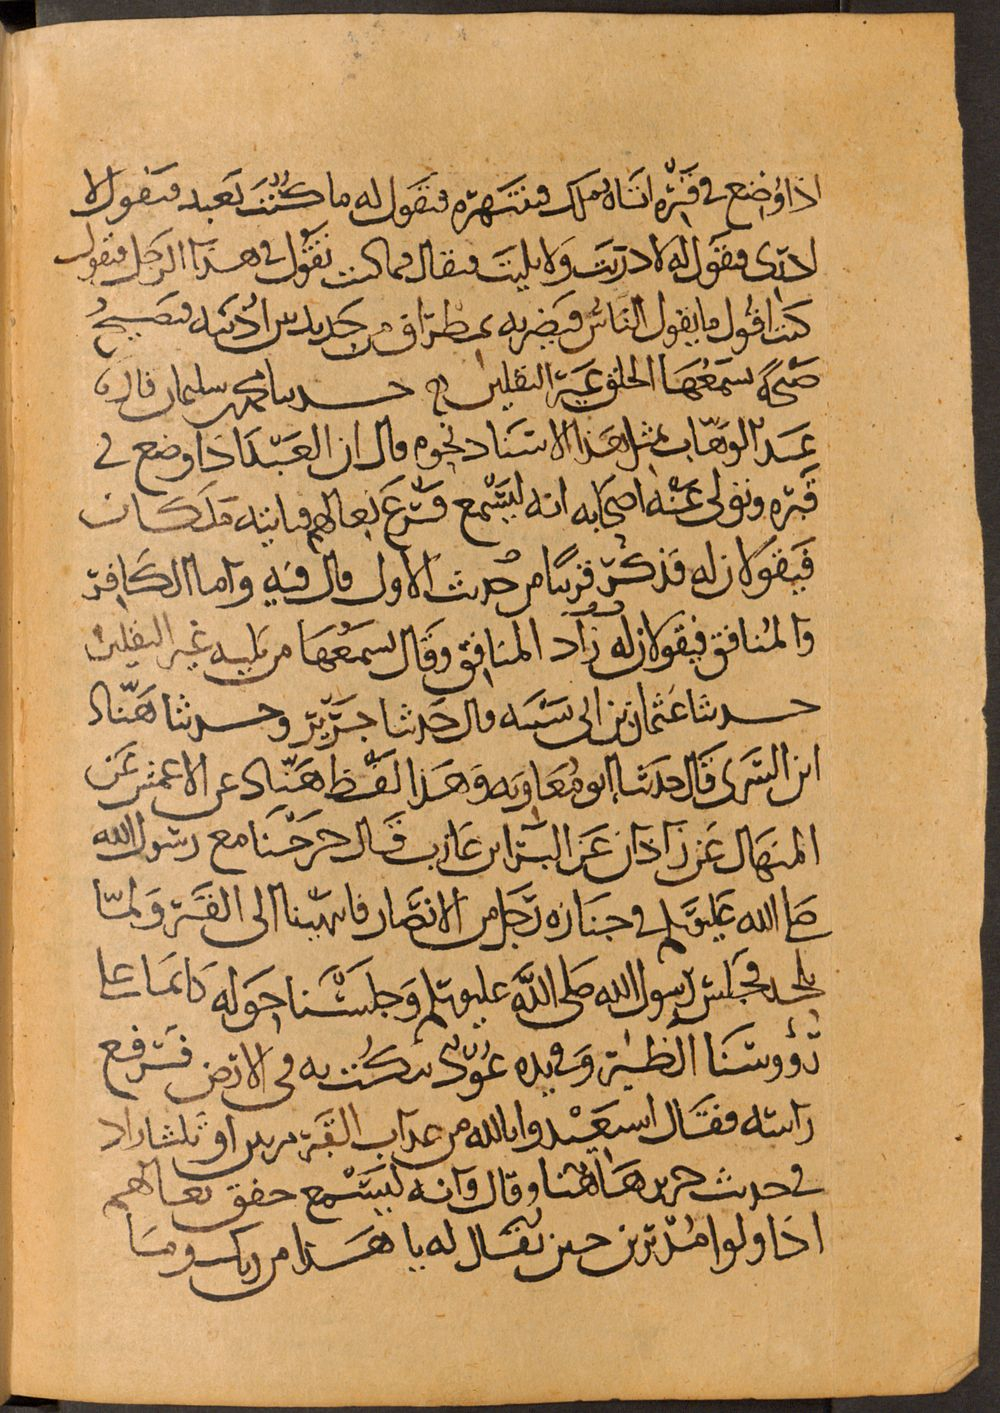 اذا وُضِع فى قَبْره اتاه مَلك فينتَهِره فيقول له ما كُنْتَ تعبد فيقول لا
ادرى فيقول له لا دريت ولا تليت فيقال فما كنت تقُول فى هذا الرجل فيقول
كنت اقول ما يقول الناس فيضربه بمطراق من حديد بين اذنيه فيصيح
صيحة يسمعها الخلق غير الثقلين حدثنا محمد بن سليمان قال نا
عبد الوهاب بمثل هذا الاسناد نحوه قال ان العبد اذا وضع فى
قبره وتولى عنه اصحابه انه ليسمع قرع نعالهم فياتيه ملكان
فيقولان له فذكر قريبا من حديث الاول قال فيه واما الكافر
والمنافق فيقولان له زاد المنافق وقال يسمعها من يليه غير الثقلين
حدثنا عثمان بن ابى شيبه قال حدثنا جرير وحدثنا هناد
ابن السرى قال حدثنا ابو معاويه وهذا لفظ هناد عن الاعمش عن
المنهال عن زاذان عن البرا بن عازب قال خرجنا مع رسول الله
صلى الله عليه وسلم فى جنازه رجل من الانصار فانتهينا الى القبر ولما
يلحد فجلس رسول الله صلى الله عليه وسلم وجلسنا حوله كانما على
رؤوسنا الطير وفى يده عود ينكت به فى الارض فرفع
راسه فقال استعيذوا بالله من عذاب القبر مرتين او ثلثا زاد
فى حديث جرير هاهنا وقال وانه ليسمع خفق نعالهم
اذا ولوا مدبرين حين يقال له يا هذا من ربك وما